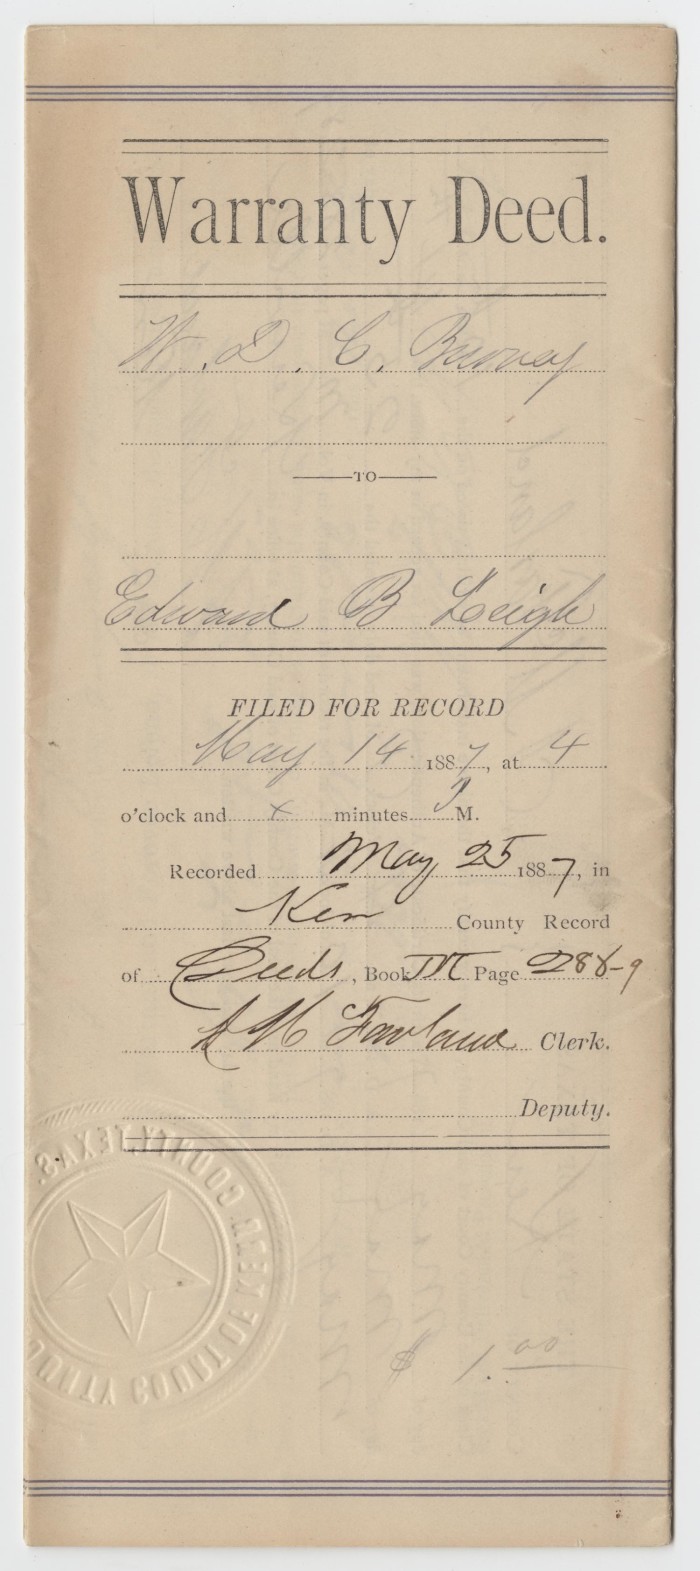 Warranty Deed.
W. D. C. Burney
TO
Edward B Leigh
FILED FOR RECORD
May 14 1887, at 4
o'clock and x minutes P M.
Recorded May 25 1887, in
Kerr County Record
of Deeds, Book Page 288-9
A Mc Farland Clerk.
Deputy.
COUNTY COURT OF KERR COUNTY, TEXAS.
$ 1.00